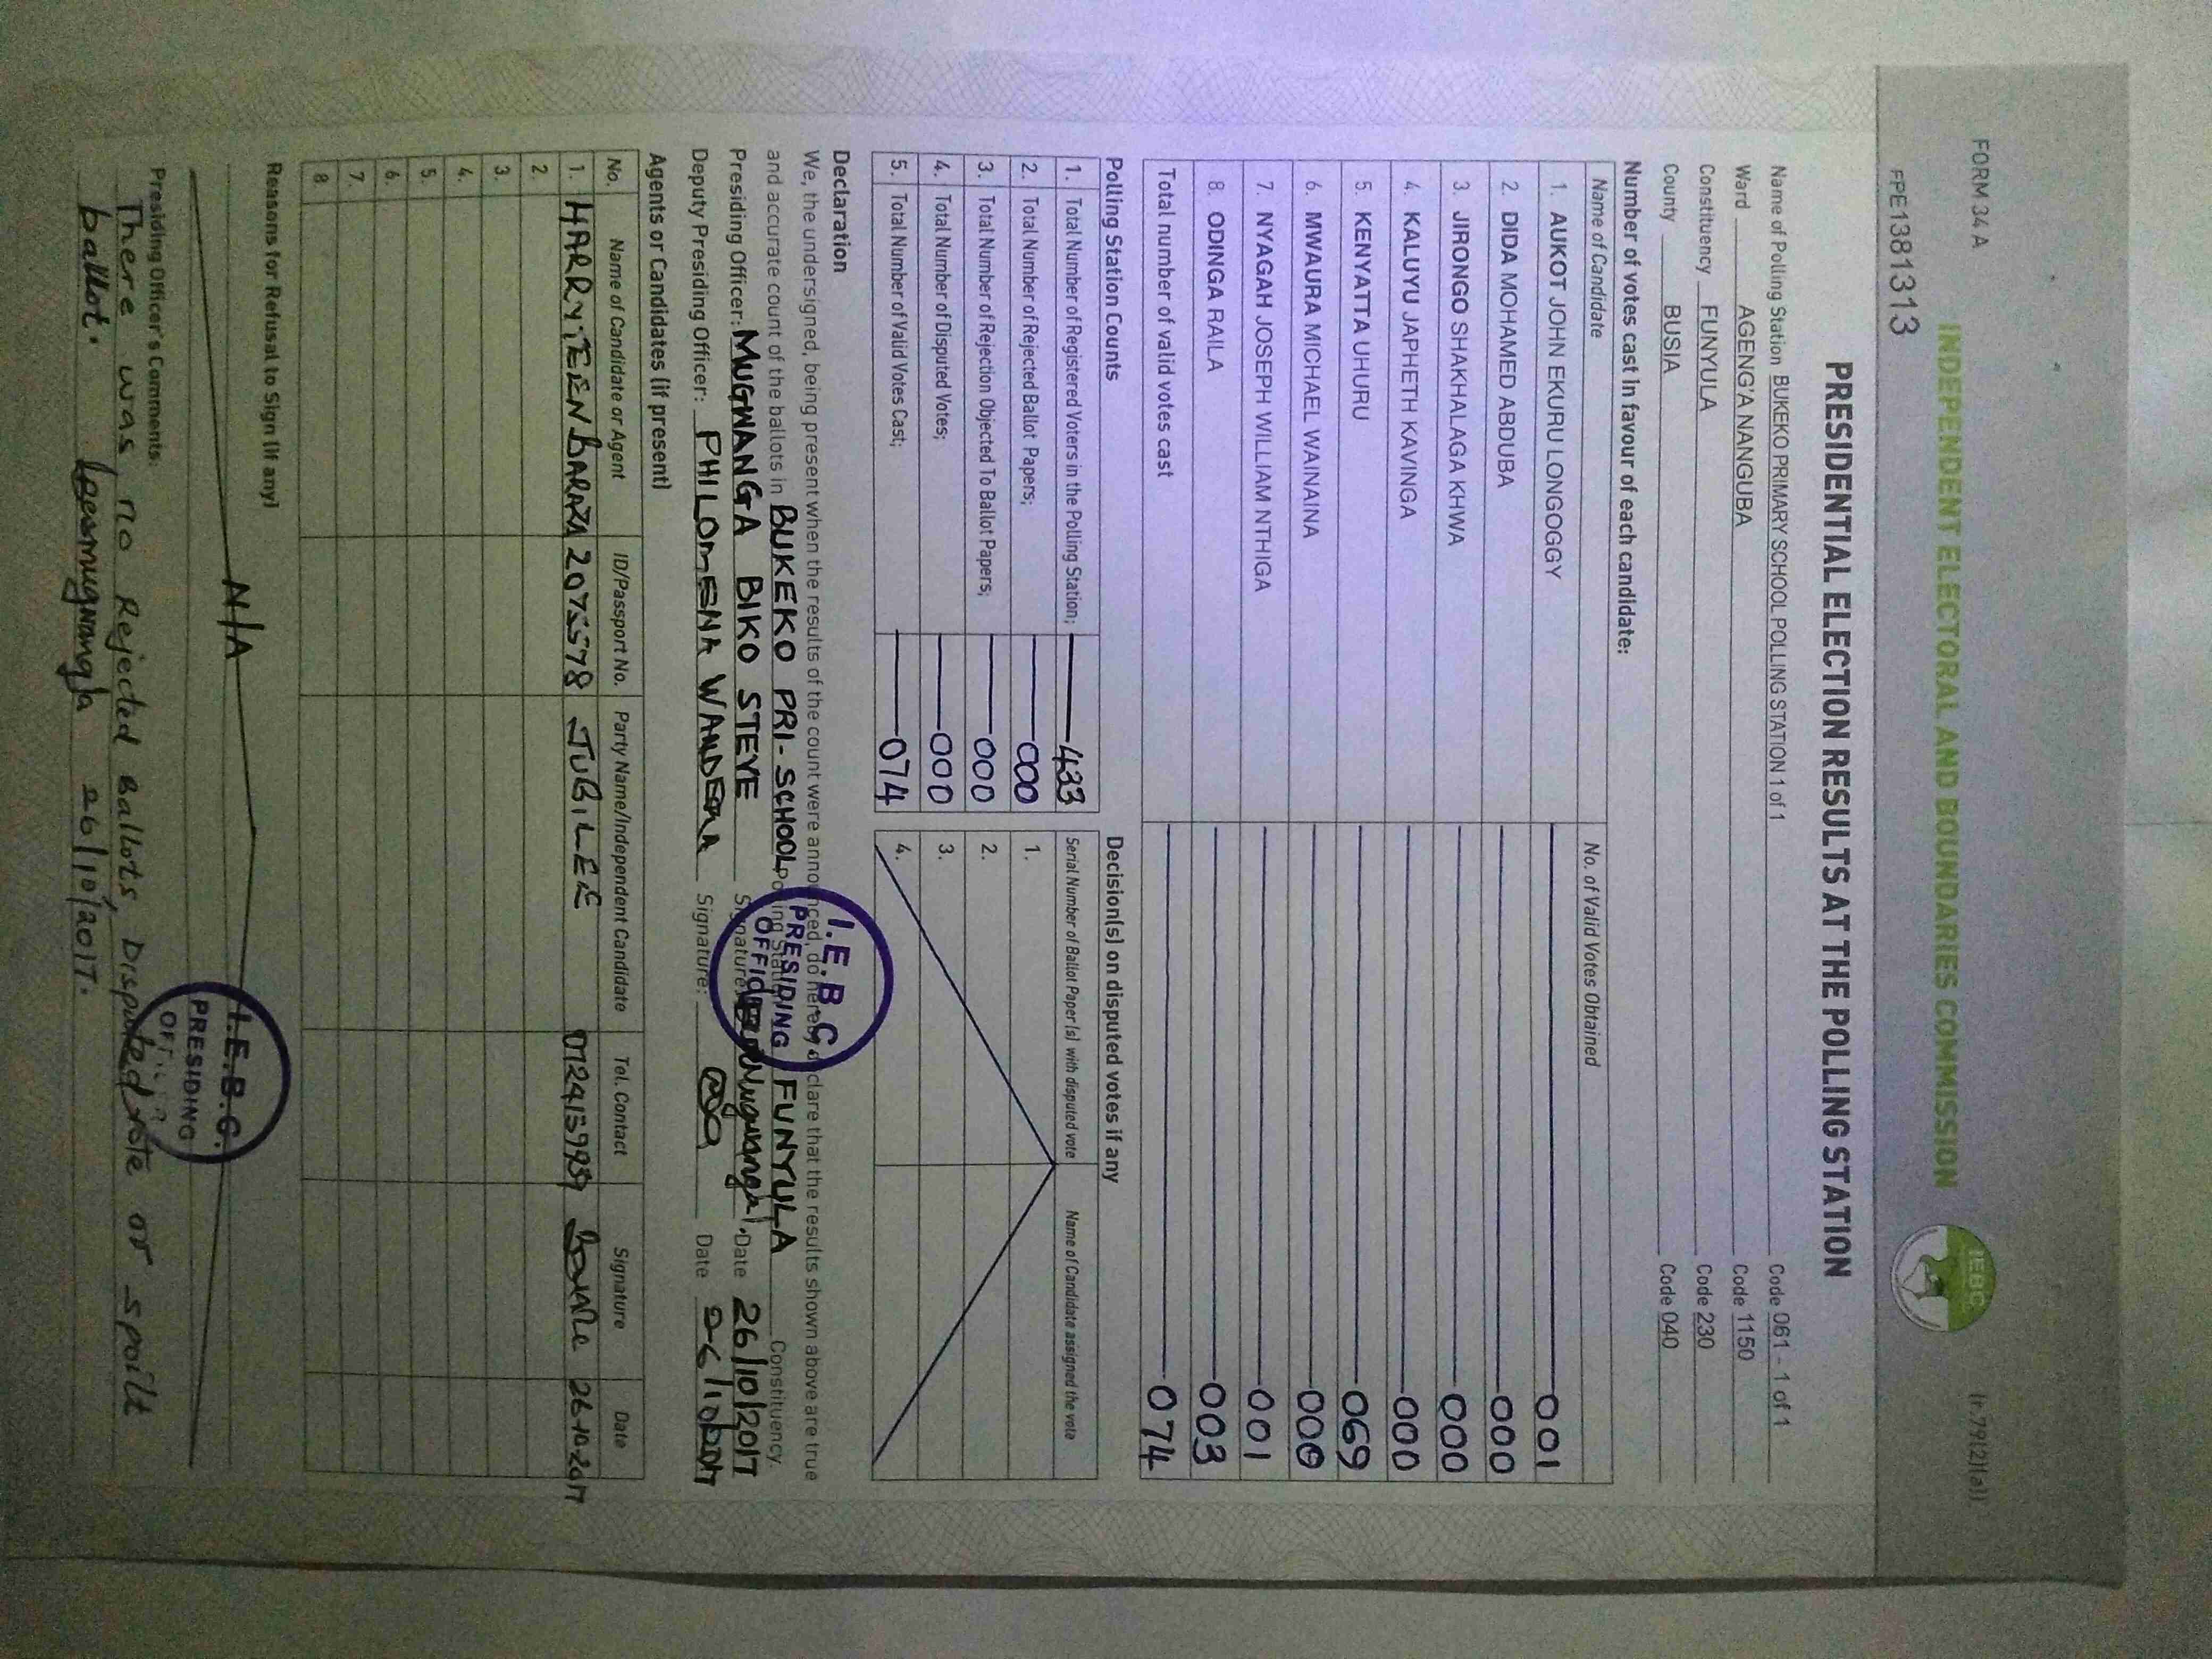 FORM 34 A
(r.79(2)(a))
INDEPENDENT ELECTORAL AND BOUNDARIES COMMISSION
IEBC
FPE1381313
PRESIDENTIAL ELECTION RESULTS AT THE POLLING STATION
Name of Polling Station BUKEKO PRIMARY SCHOOL POLLING STATION 1 of 1 Code 061 - 1 of 1
Ward AGENG'A NANGUBA Code 1150
Constituency FUNYULA Code 230
County BUSIA Code 040
Number of votes cast in favour of each candidate:
Name of Candidate No. of Valid Votes Obtained
1. AUKOT JOHN EKURU LONGOGGY 001
2. DIDA MOHAMED ABDUBA 000
3. JIRONGO SHAKHALAGA KHWA 000
4. KALUYU JAPHETH KAVINGA 000
5. KENYATTA UHURU 069
6. MWAURA MICHAEL WAINAINA 000
7. NYAGAH JOSEPH WILLIAM NTHIGA 001
8. ODINGA RAILA 003
Total number of valid votes cast 074
Polling Station Counts
1. Total Number of Registered Voters in the Polling Station; 433
2. Total Number of Rejected Ballot Papers; 000
3. Total Number of Rejection Objected To Ballot Papers; 000
4. Total Number of Disputed Votes; 000
5. Total Number of Valid Votes Cast; 074
Decision(s) on disputed votes if any
Serial Number of Ballot Paper (s) with disputed vote Name of Candidate assigned the vote
1.
2.
3.
4.
Declaration
We, the undersigned, being present when the results of the count were announced, do hereby declare that the results shown above are true
and accurate count of the ballots in BUKEKO PRI-SCHOOL Polling Station FUNYULA Constituency.
Presiding Officer: MUGWANGA BIKO STEVE Signature: Date 26/10/2017
Deputy Presiding Officer: PHILOMENA WANDERA Signature: Date 26/10/2017
I.E.B.C
PRESIDING
OFFICER
Agents or Candidates (if present)
No. Name of Candidate or Agent ID/Passport No. Party Name/Independent Candidate Tel. Contact Signature Date
1. 2075578 JUBILEE 26-10-2017
2.
3.
4.
5.
6.
7.
8.
Reasons for Refusal to Sign (if any)
N/A
I.E.B.C.
PRESIDING
Presiding Officer's Comments.
There was no Rejected Ballots, Disputed vote or spoilt
ballot. 26/10/2017.